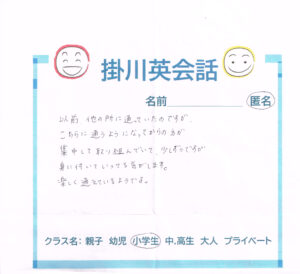 掛川英会話
名前 匿名
以前 他の所に通っていたのですが、
こちらに通うようになってからの方が
集中して取り組んでいて、少しずつですが
身に付いていってる気がします。
楽しく通えているようです。
クラス名: 親子 幼児 小学生 中,高生 大人 プライベート